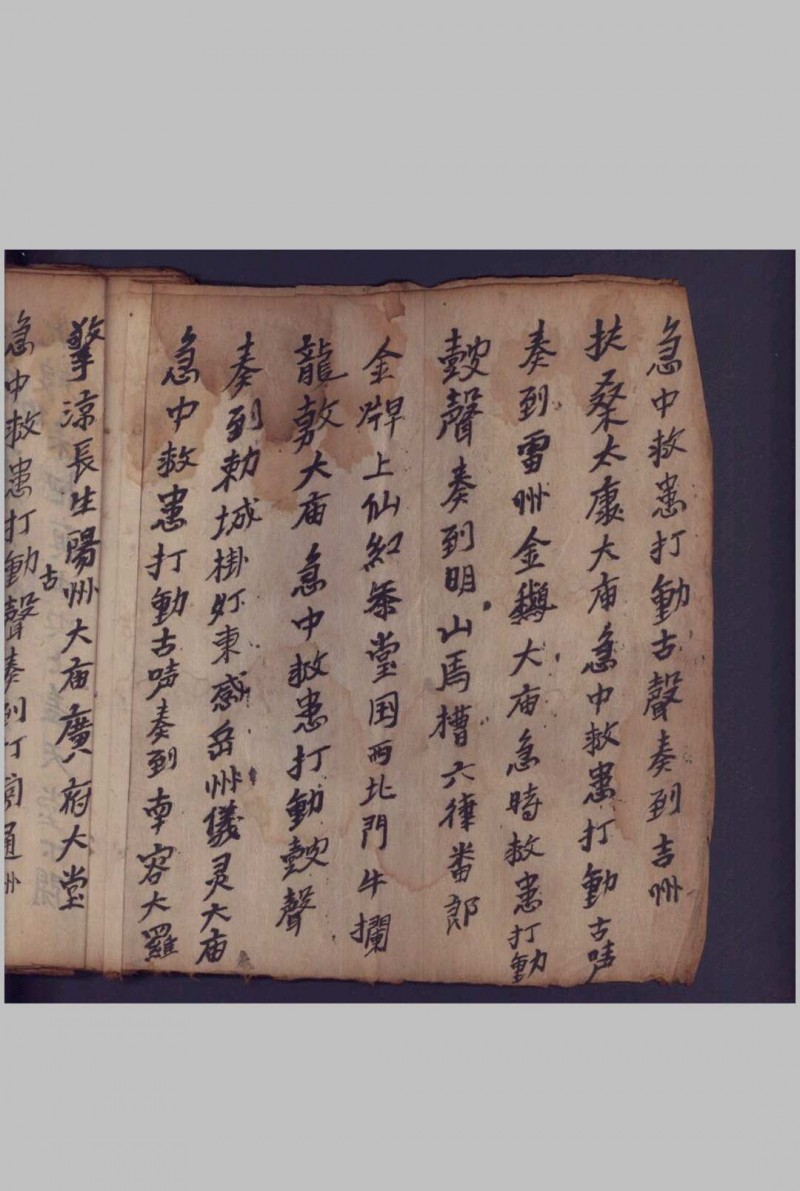 急中救患打動古聲奏到吉州
扶桑太廟大庙急中救患打動古唥
奏到雷州金鵝大庙急時救患打動
鼓聲奏到明山馬槽六律番郎
金牌上仙紅茶堂国西北門牛欄
龍敖大庙急中救患打動鼓聲
奏到勅城掛灯東感岳州儀灵大庙
急中救患打動古唥奏到南容大羅
擎涼長生陽州大庙廣八府大堂
急中救患打動古聲奏到丁 通州